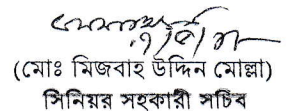 (মোঃ মিজবাহ উদ্দিন মোল্লা)
সিনিয়র সহকারী সচিব